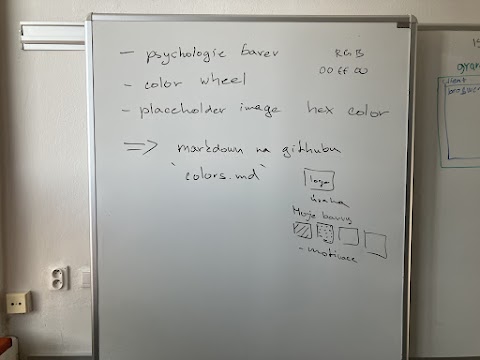 - psychologie barev
RGB
00 ff 00
- color wheel
- placeholder image hex color
=> markdown na githubu
`colors.md`
logo
úvaha
Moje barvy
- motivace